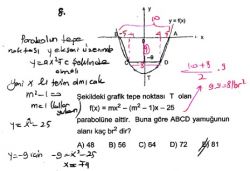 8.
Parabolün tepe
noktası y ekseni üzerinde
y=ax²+c şeklinde
olmalı
yani x li terim olmayacak
m²-1=0
m=1 (kollar yukarı)
y=x²-25
y=-9 için -9=x²-25
x=±4
10
y = f(x)
-5
5
A
B
x
9
8
10+8
2
. 9
9.9=81br²
Şekildeki grafik tepe noktası T olan
f(x) = mx² – (m² – 1)x – 25
parabolüne aittir. Buna göre ABCD yamuğunun
alanı kaç br² dir?
A) 48 B) 56 C) 64 D) 72 E) 81